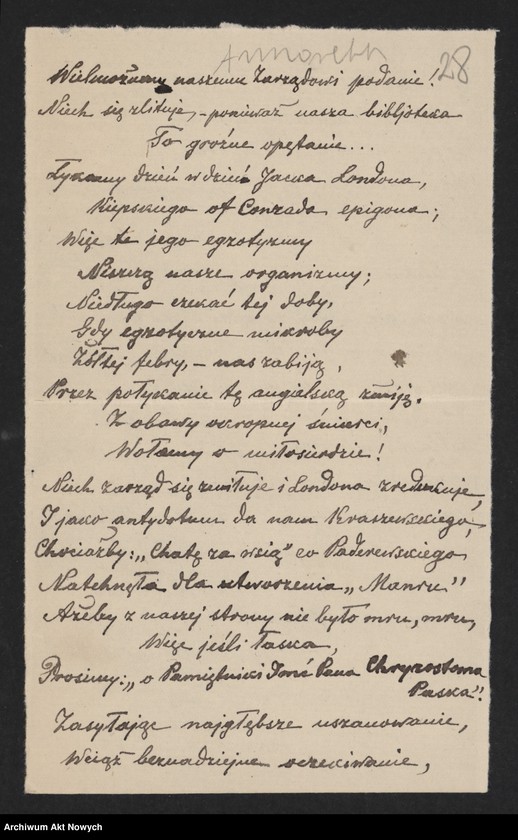 28
Wielmożnemu naszemu Zarządowi podanie!
Niech się zlituje, – ponieważ nasza bibljoteka
To groźne opętanie...
Łykamy dzień w dzień Jacka Londona,
Kiepskiego of Conrada epigona;
Więc te jego egzotyzmy
Niszczą nasze organizmy;
Niedługo czekać tej doby,
Gdy egzotyczne mikroby
Żółtej febry, – nas zabiją,
Przez połykanie tę angielską żmiją.
Z obawy okropnej śmierci,
Wołamy o miłosierdzie!
Niech zarząd się zmituje i Londona zredukuje,
I jako antydotum da nam Kraszewskiego,
Chociażby: „Chatę za wsią" co Paderewskiego
Natchnęła dla utworzenia „Manru"
Ażeby z naszej strony nie było mru, mru,
Więc jeśli łaska,
Prosimy: „o Pamiętniki Imć Pana Chryzostoma
Paska".
Zasyłając najgłębsze uszanowanie,
Wciąż beznadziejne oczekiwanie,
Archiwum Akt Nowych